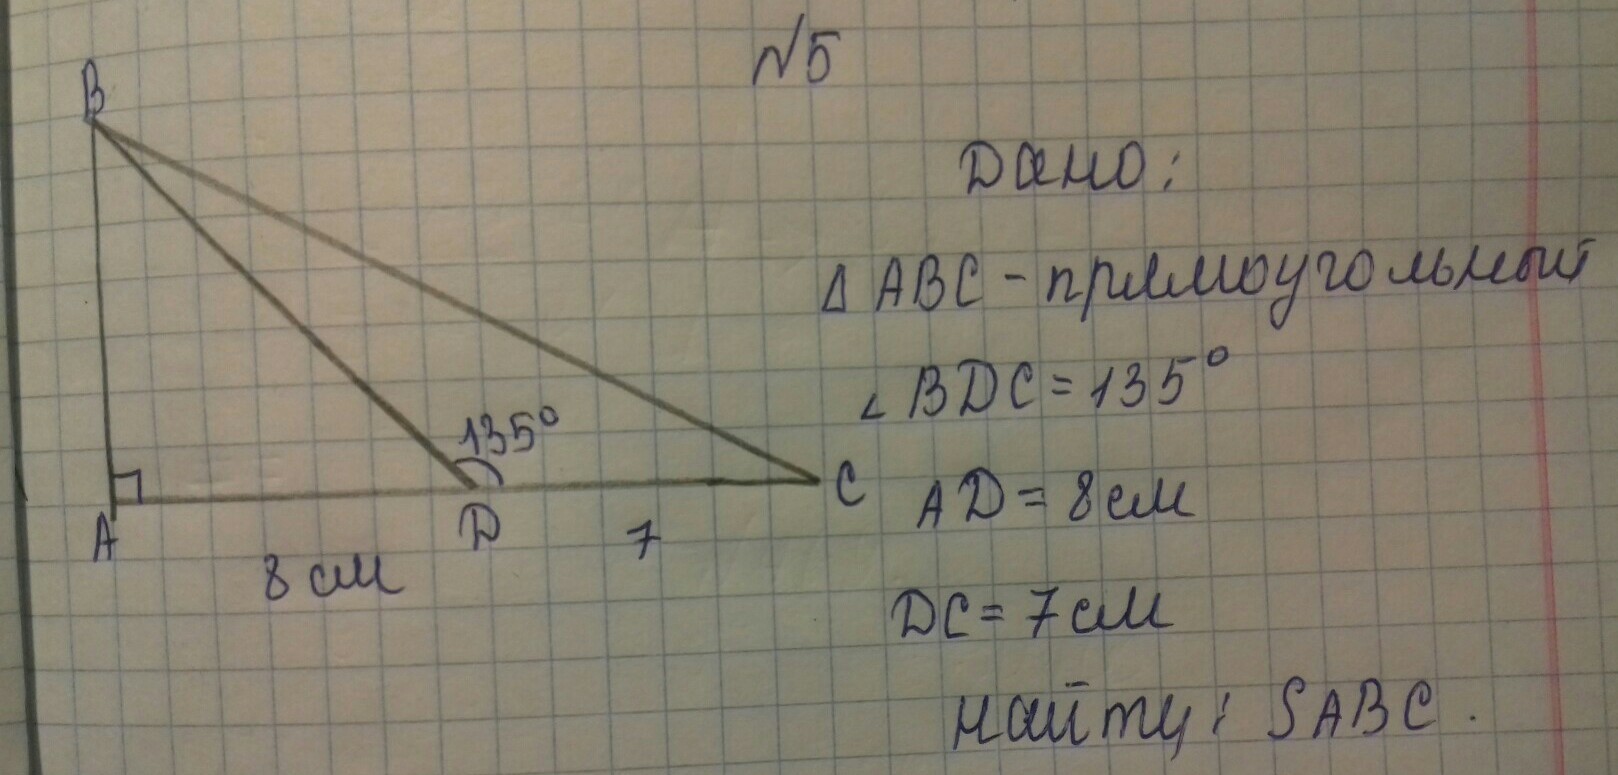 №5
B
Дано:
Δ ABC - прямоугольный
∠ BDC = 135°
135°
C
AD = 8 см
A
D
7
8 см
DC = 7 см
найти: SABC.